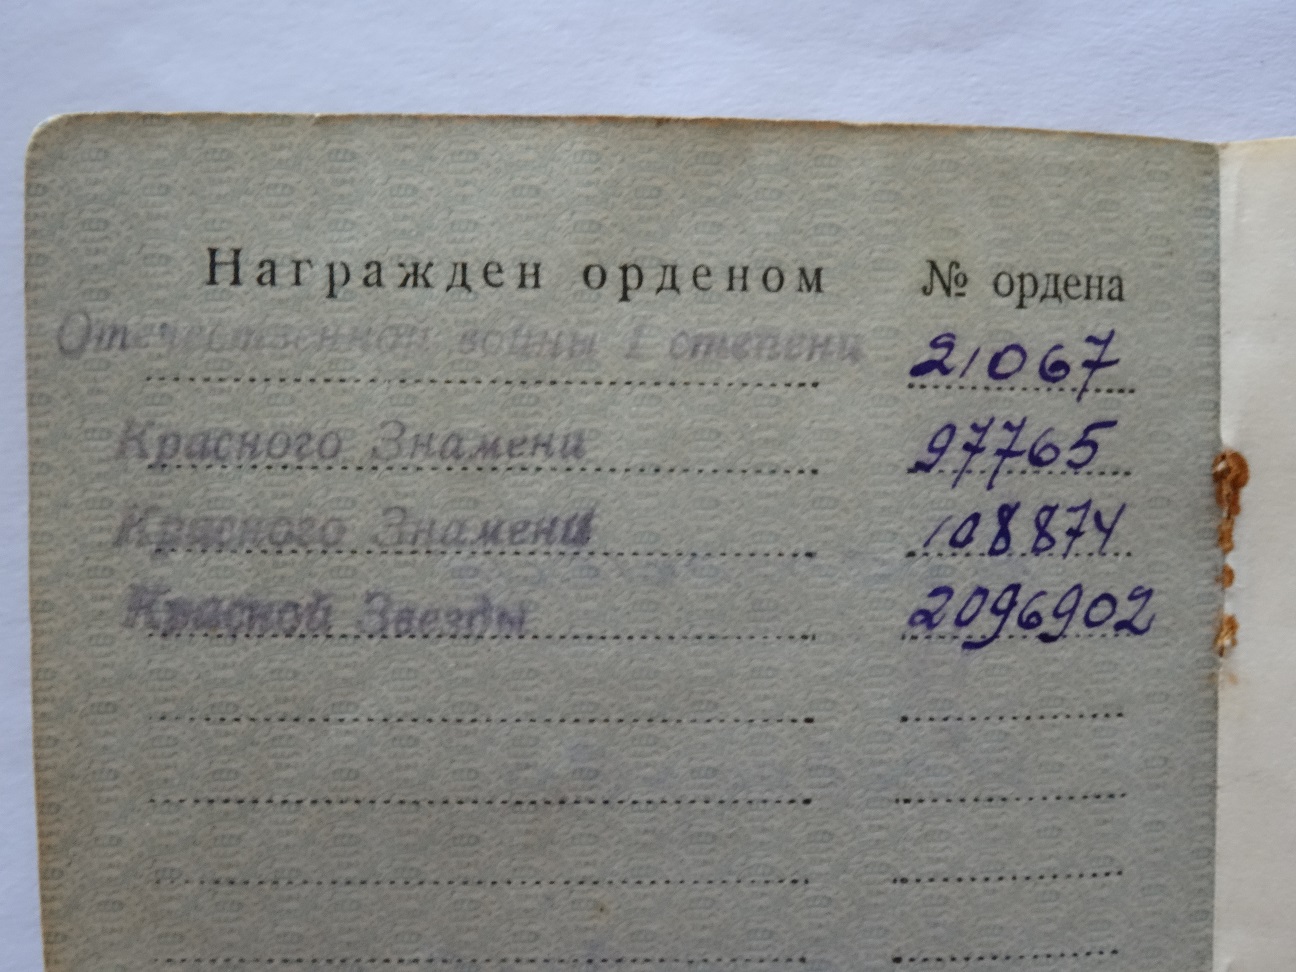 Награжден орденом № ордена
Отечественной войны I степени 21067
Красного Знамени 97765
Красного Знамени 108874
Красной Звезды 2096902